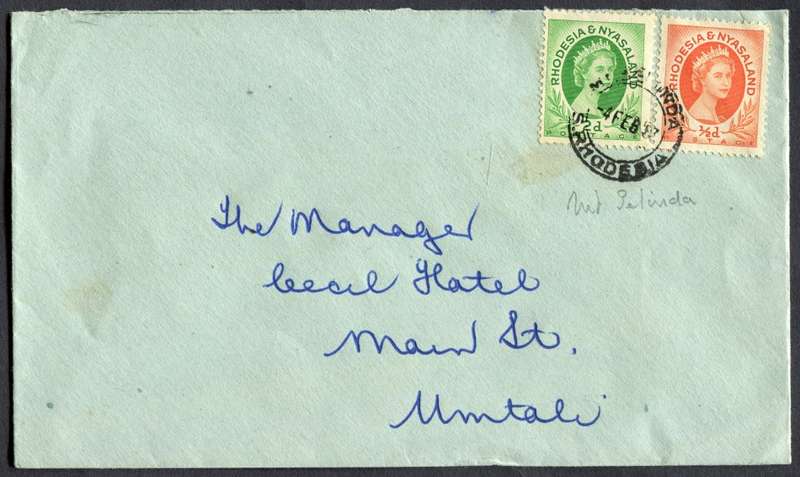 RHODESIA & NYASALAND
d
POSTAGE
RHODESIA & NYASALAND
½d
POSTAGE
4 FEB
S. RHODESIA
Mt Selinda
The Manager
Cecil Hotel
Main St.
Umtali